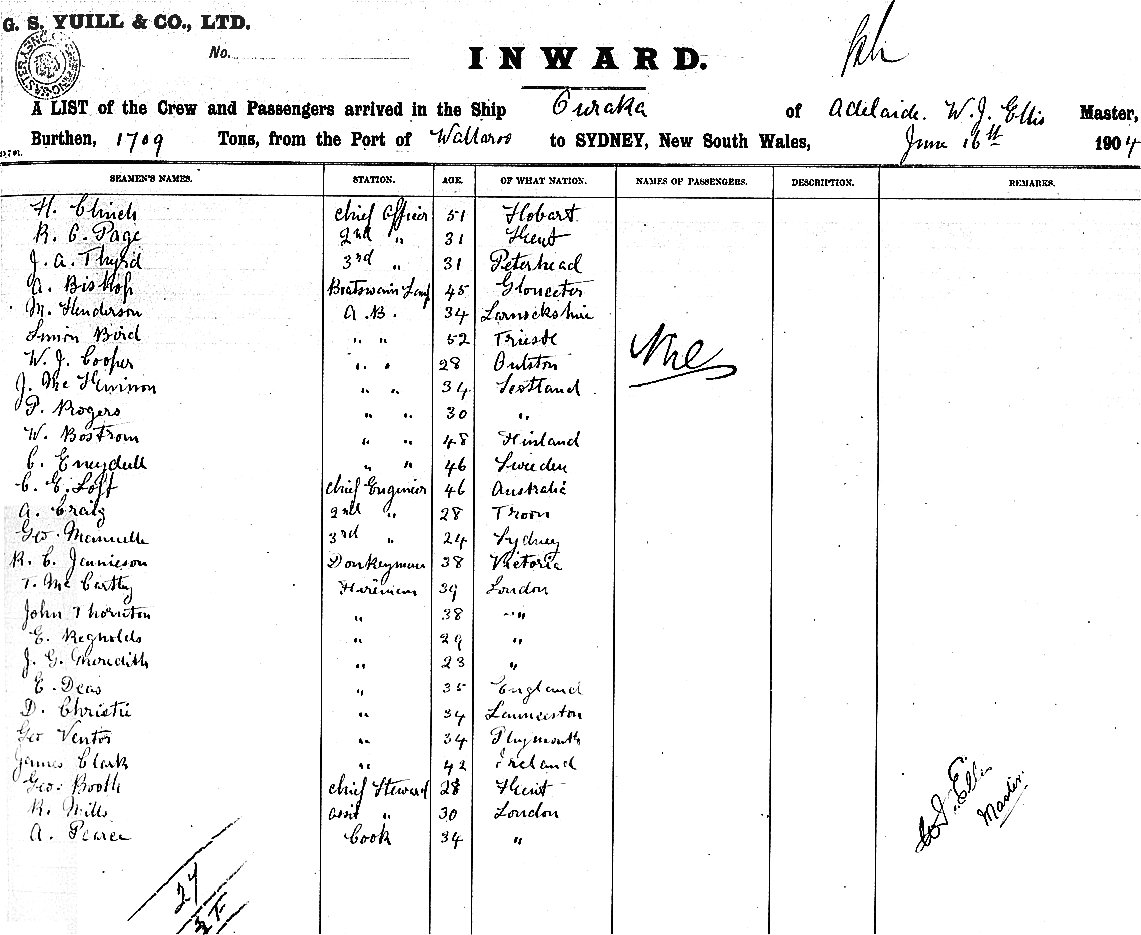 G. S. YUILL & CO., LTD.
No.
INWARD.
A LIST of the Crew and Passengers arrived in the Ship Ouraka of Adelaide. W. J. Ellis Master,
Burthen, 1709 Tons, from the Port of Wallaroo to SYDNEY, New South Wales, June 16th 1904
SEAMEN'S NAMES. STATION. AGE. OF WHAT NATION. NAMES OF PASSENGERS. DESCRIPTION. REMARKS.
H. Clinch Chief Officer 51 Hobart
R. C. Page 2nd " 31 Kent
J. A. Thyrd 3rd " 31 Peterhead
A. Bishop Boatswain Lamp 45 Gloucester
M. Henderson A.B. 34 Larnockshire
Simon Bird " " 52 Trieste
W. J. Cooper " " 28 Oulston
J. Mc " " 34 Scotland
P. Rogers " " 30 "
W. Bostrom " " 48 Finland
C. " " 46 Sweden
C. E. Loft Chief Engineer 46 Australia
A. Craig 2nd " 28 Troon
Geo. Mannelle 3rd " 24 Sydney
R. C. Jamieson Donkeyman 38 Victoria
T. Mc Carthy Firemen 39 London
John Thornton " 38 "
E. Reynolds " 29 "
J. G. Meredith " 23 "
E. Deas " 35 England
D. Christie " 34 Launceston
Geo Ventor " 34 Plymouth
James Clark " 42 Ireland
Geo. Booth Chief Steward 28 Kent
R. Wills asst " 30 London
A. Pearce Cook 34 "
Nil
W J Ellis
Master
27